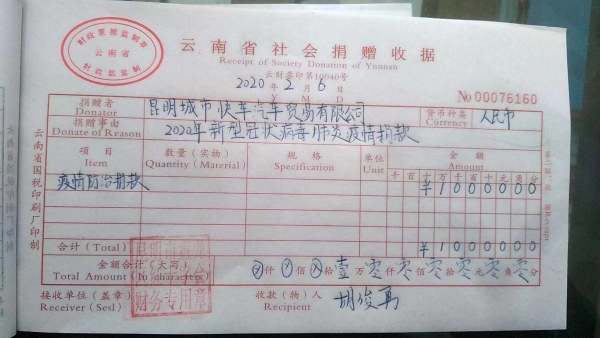 财政票据监制章
云南省
财政部监制
云南省社会捐赠收据
Receipt of Society Donation of Yunnan
云财票印第10040号
2020年2月6日
Y M D
No 00076160
捐赠者
Donator
昆明城市快车汽车贸易有限公司
货币种类
Currency
人民币
捐赠事由
Donate of Reason
2020年新型冠状病毒肺炎疫情捐款
项目
Item
数量(实物)
Quantity (Material)
规格
Specification
单位
Unit
金额
Amount
千百十万千百十元角分
疫情防治捐款
¥1000000
合计(Total)
¥1000000
金额合计(大写)
Total Amount (In characters)
仟佰拾壹万零仟零佰零拾零元零角零分
接收单位(盖章)
Receiver (Sesl)
财务专用章
收款(物)人
Recipient
胡俊勇
云南省国税印刷厂印制